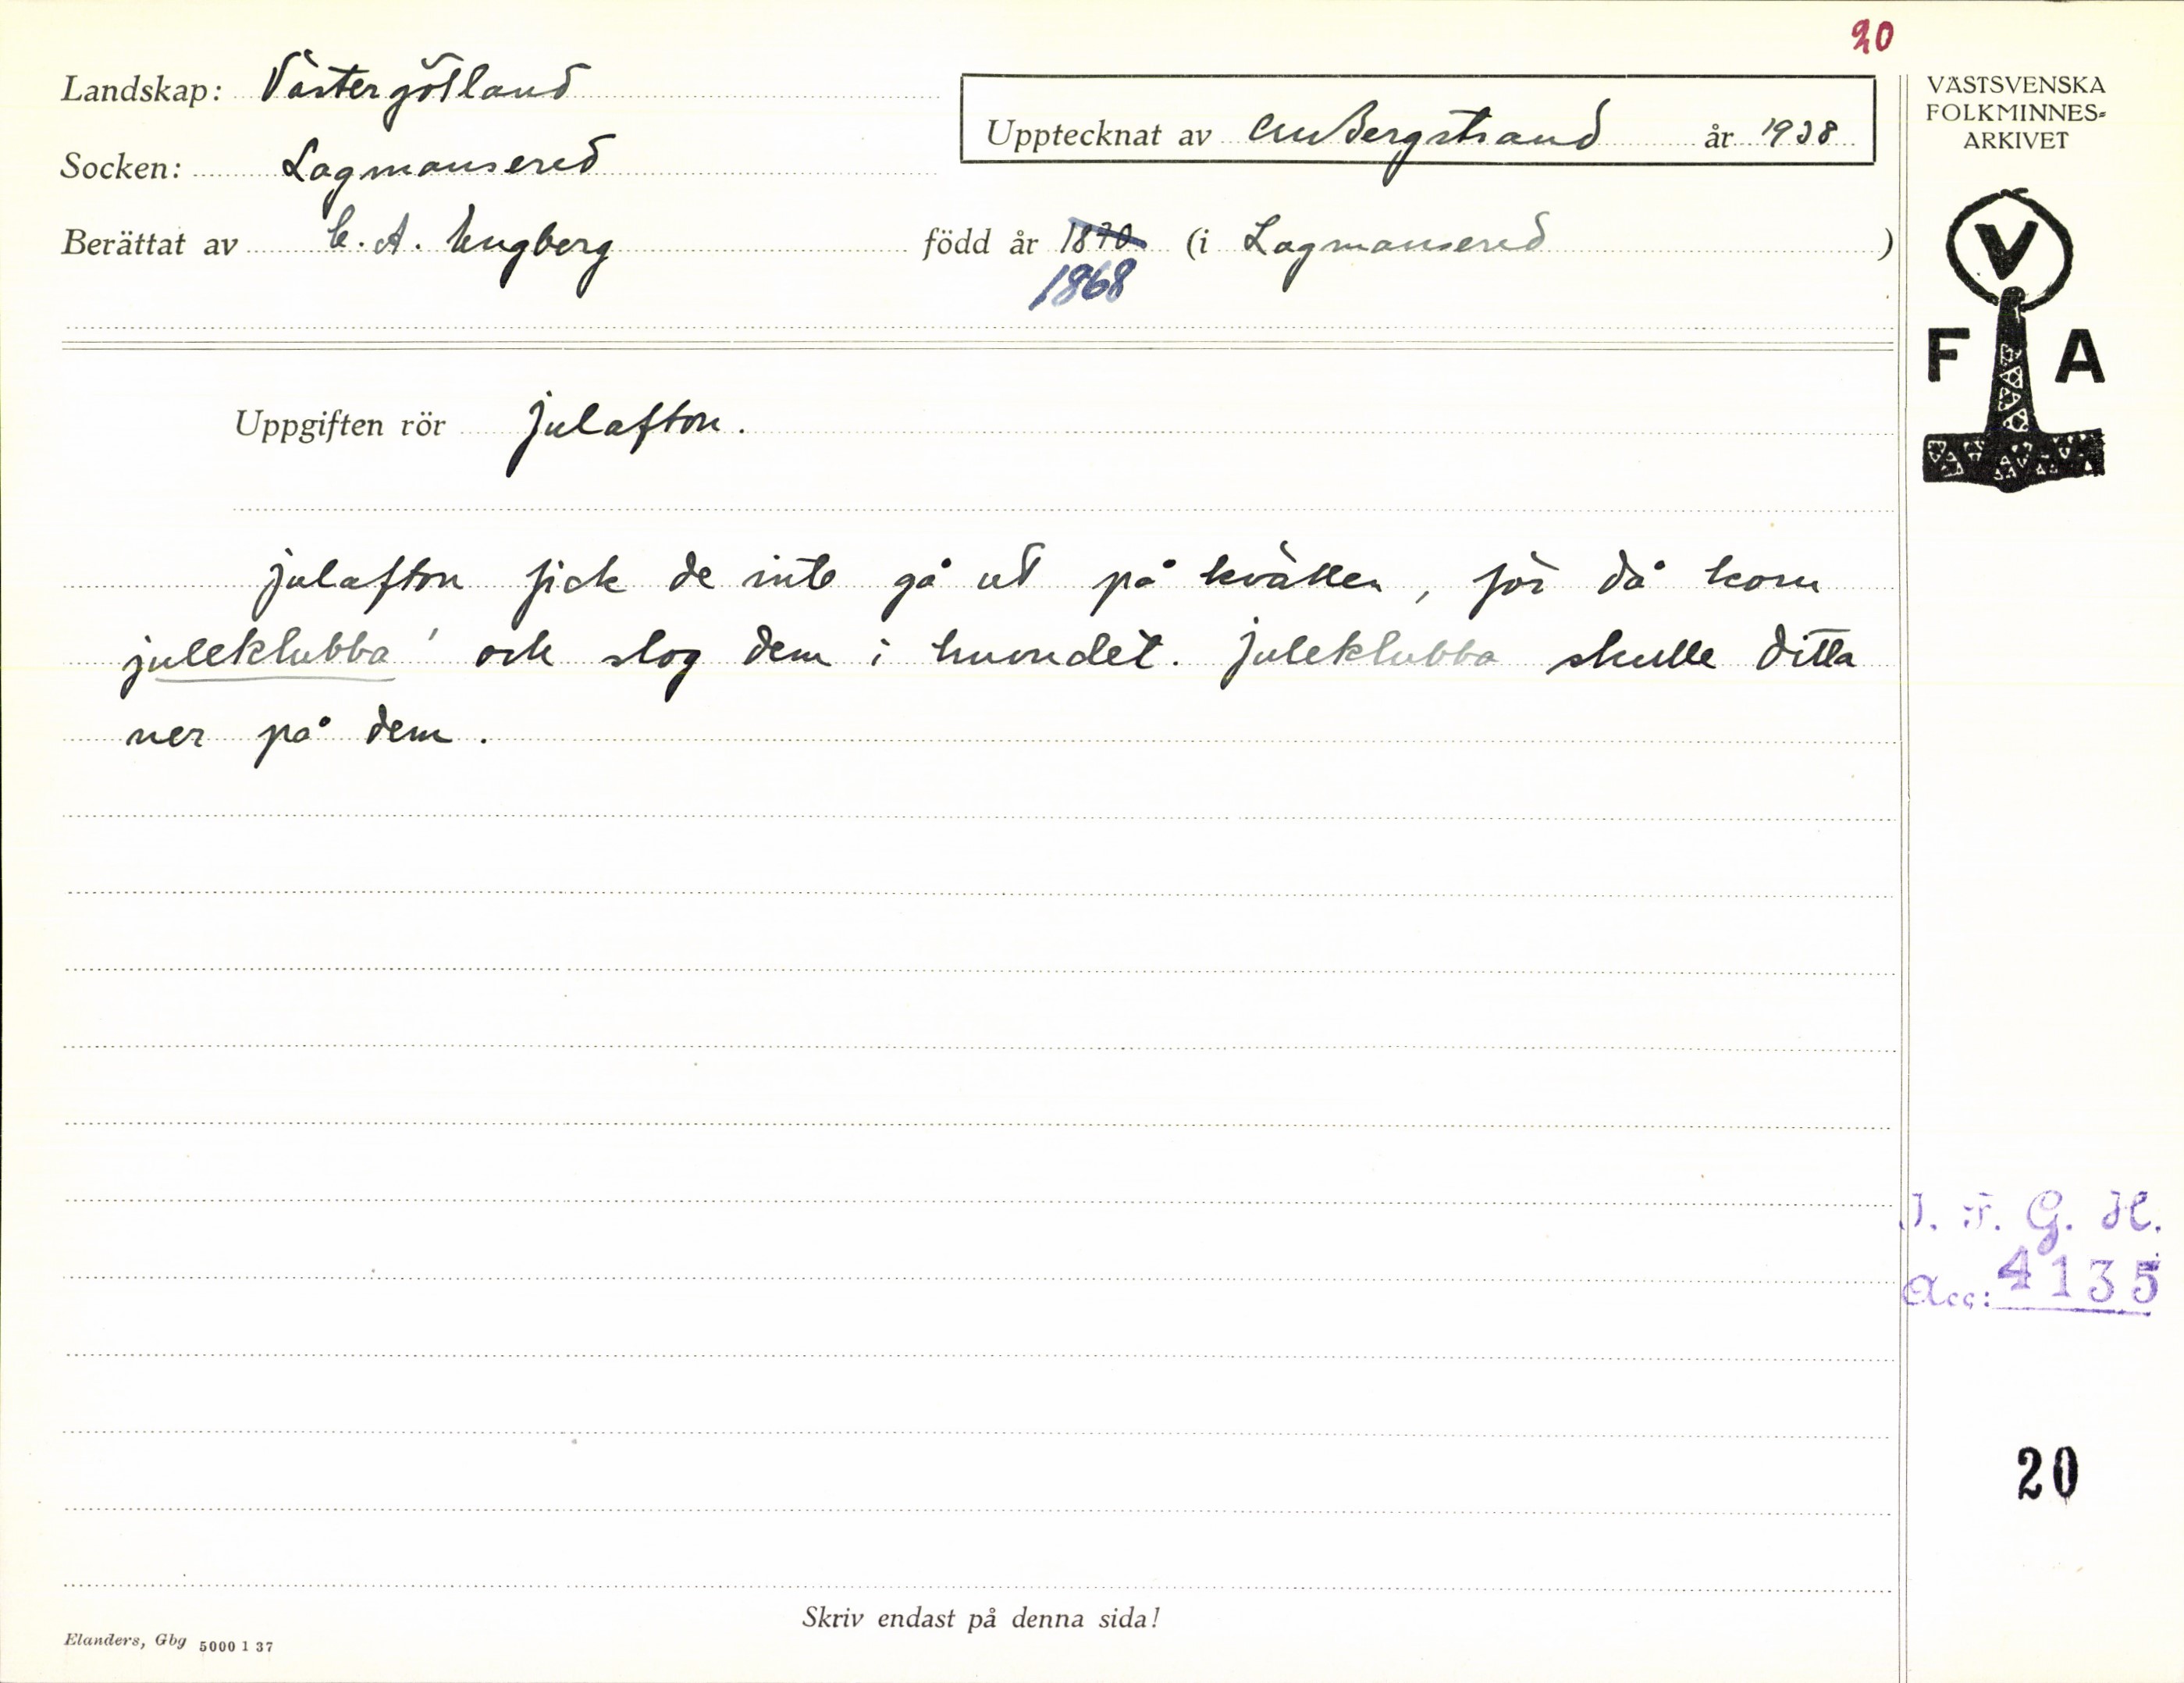 20
Landskap: Västergötland
Upptecknat av CMBergstrand år 1938
VÄSTSVENSKA
FOLKMINNES-
ARKIVET
Socken: Lagmansered
Berättat av C. A. Engberg född år 1870 (i Lagmansered )
1868
V
F A
Uppgiften rör julafton.
julafton fick de inte gå ut på kvällen, för då kom
juleklubba' och slog dem i huvudet. juleklubba skulle ditta
ner på dem.
I. F. G. H.
Acc: 4135
20
Skriv endast på denna sida!
Elanders, Gbg 5000 1 37